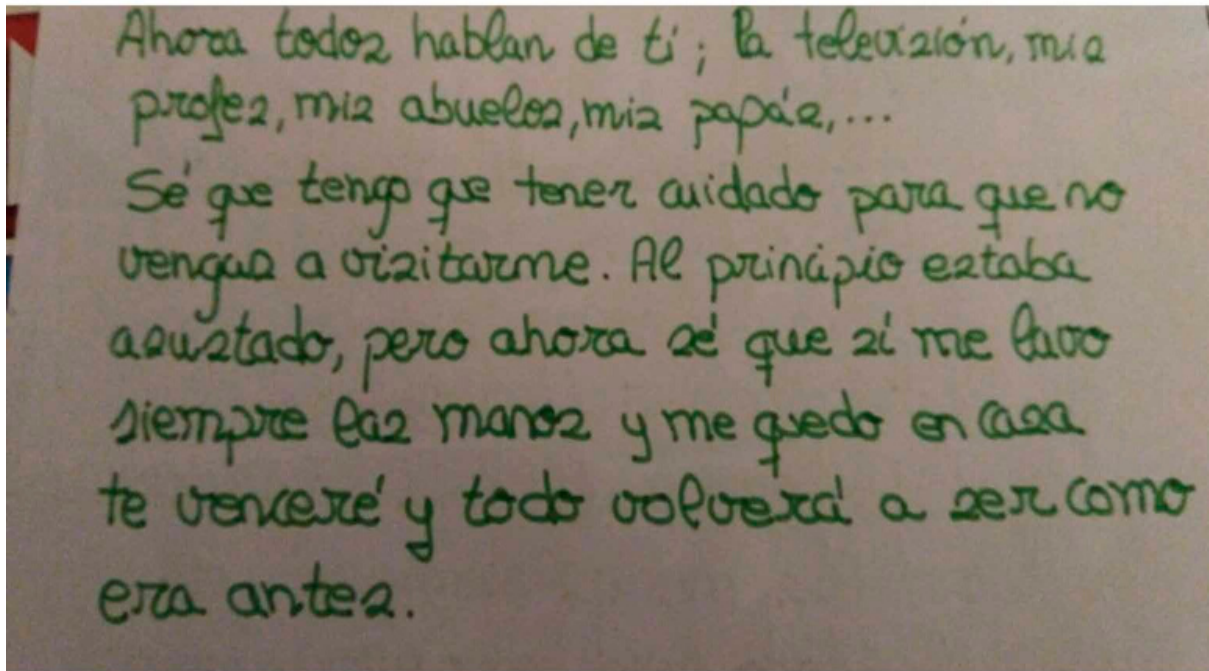 Ahora todos hablan de ti; la televisión, mis
profes, mis abuelos, mis papás,...
Sé que tengo que tener cuidado para que no
vengas a visitarme. Al principio estaba
asustado, pero ahora sé que sí me lavo
siempre las manos y me quedo en casa
te venceré y todo volverá a ser como
era antes.